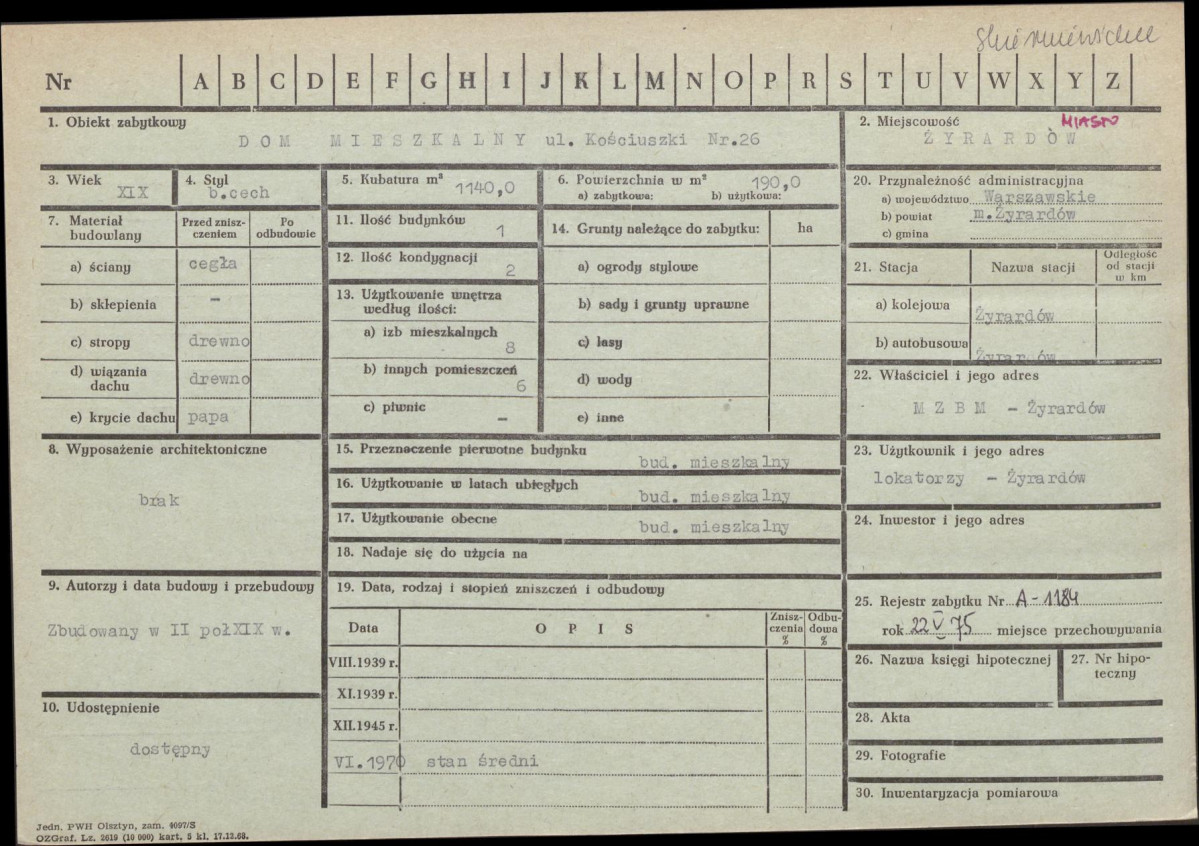 Skierniewickie
Nr A B C D E F G H I J K L M N O P R S T U V W X Y Z
1. Obiekt zabytkowy
DOM MIESZKALNY ul. Kościuszki Nr.26
2. Miejscowość MIASTO
ŻYRARDÓW
3. Wiek
XIX
4. Styl
b.cech
5. Kubatura m³
1140,0
6. Powierzchnia w m² 190,0
a) zabytkowa: b) użytkowa:
20. Przynależność administracyjna
a) województwo Warszawskie
b) powiat m.Żyrardów
c) gmina
7. Materiał budowlany
Przed zniszczeniem
Po odbudowie
a) ściany cegła
b) sklepienia –
c) stropy drewno
d) wiązania dachu drewno
e) krycie dachu papa
11. Ilość budynków
1
12. Ilość kondygnacji
2
13. Użytkowanie wnętrza
według ilości:
a) izb mieszkalnych
8
b) innych pomieszczeń
6
c) piwnic
–
14. Grunty należące do zabytku: ha
a) ogrody stylowe
b) sady i grunty uprawne
c) lasy
d) wody
e) inne
21. Stacja Nazwa stacji
Odległość
od stacji
w km
a) kolejowa
Żyrardów
b) autobusowa
Żyrardów
22. Właściciel i jego adres
M Z B M – Żyrardów
8. Wyposażenie architektoniczne
brak
15. Przeznaczenie pierwotne budynku
bud. mieszkalny
16. Użytkowanie w latach ubiegłych
bud. mieszkalny
17. Użytkowanie obecne
bud. mieszkalny
18. Nadaje się do użycia na
23. Użytkownik i jego adres
lokatorzy – Żyrardów
24. Inwestor i jego adres
9. Autorzy i data budowy i przebudowy
Zbudowany w II połXIX w.
10. Udostępnienie
dostępny
19. Data, rodzaj i stopień zniszczeń i odbudowy
Data OPIS
Zniszczenia %
Odbudowa %
VIII.1939 r.
XI.1939 r.
XII.1945 r.
VI.1970 stan średni
25. Rejestr zabytku Nr A-1184
rok 22 V 75 miejsce przechowywania
26. Nazwa księgi hipotecznej
27. Nr hipoteczny
28. Akta
29. Fotografie
30. Inwentaryzacja pomiarowa
Jedn. PWH Olsztyn, zam. 4097/S
OZGraf. Lz. 2619 (10 000) kart. 5 kl. 17.12.68.